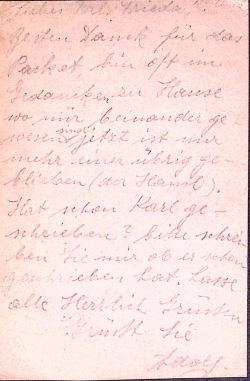 Liebes Frl. Frieda,
Besten Dank für das
Packet, bin oft im
Gedancken zu Hause
wo mir beinander ge
wesen sind jetzt ist nur
mehr einer übrig ge-
blieben (der Hansl).
Hat schon Karl ge-
schrieben? bitte schrei-
ben Sie mir ob er schon
geschrieben hat. Lasse
alle Herzlich Grüßen
Grüßt Sie
Adolf